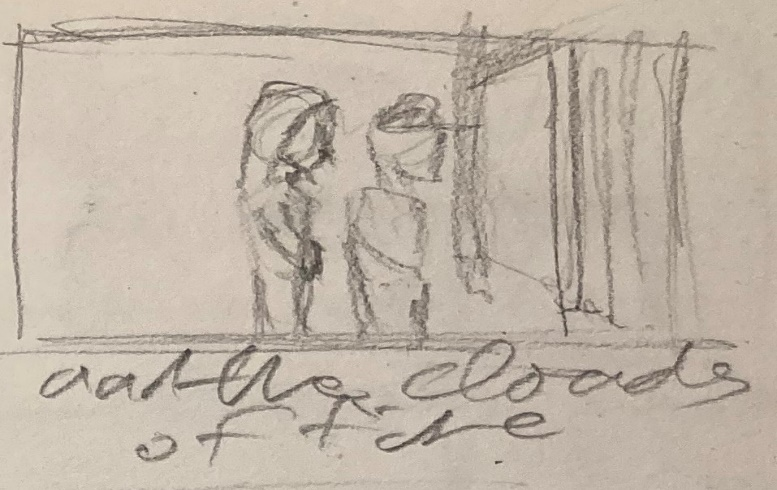 and the clouds
of fire